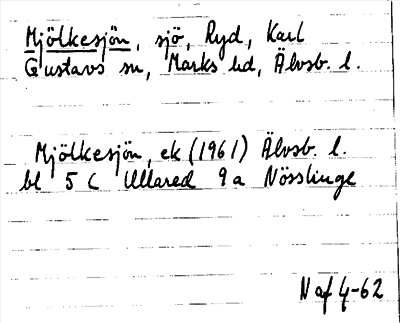 Mjölkesjön, sjö, Ryd, Karl
Gustavs sn, Marks hd, Älvsb. l.
Mjölkesjön, ek (1961) Älvsb. l.
bl 5 C Ullared 9a Nösslinge
N af 4-62